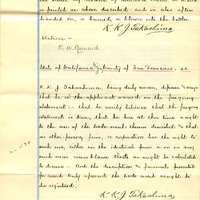 is printed as above described and is also often
branded on, a burned, or blown into the bottle
K. K. J. Takashima
Witness —
State of California City & County of San Francisco. ss.
K. K. J. Takashima, having duly sworn, deposes & says
that he is the applicant named in the foregoing
statement; that he verily believes that the foregoing
statement is true, that he has at this time a right to
the use of the trade mark therein described; that
no other person, firm, or corporation has the right to
such use, either in the identical form or in any
such near resemblance thereto as might be calculated
to deceive; and that the description and facsimiles presented
for record truly represent the trade mark sought to
be registered.
K. K. J. Takashima